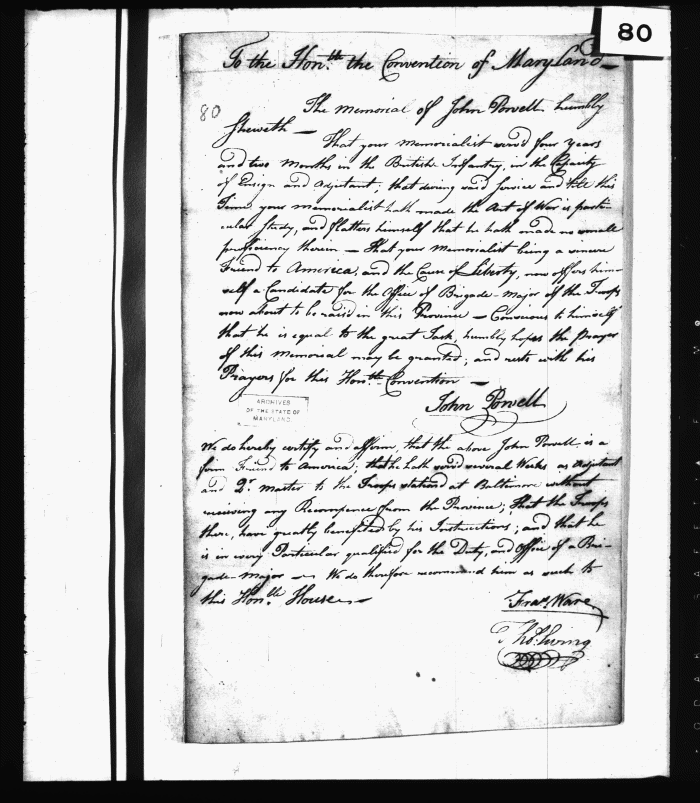 80
To the Hon.ble the Convention of Maryland —
80
The Memorial of John Powell humbly
Sheweth — That your Memorialist serv'd four years
and two Months in the British Infantry, in the Capacity
of Ensign and Adjutant; that during said Service and till this
Time your Memorialist hath made the Art of War is parti-
cular Study, and flatters himself that he hath made no small
proficiency therein — That your Memorialist being a sincere
Friend to America, and the Cause of Liberty, now offers him-
self a Candidate for the Office of Brigade-Major of the Troops
now about to be raised in this Province — Conscious to himself
that he is equal to the great Task, humbly hopes the Prayer
of this Memorial may be granted; and rests with his
Prayers for this Hon.ble Convention —
John Powell
ARCHIVES
OF THE STATE OF
MARYLAND
We do hereby certify and affirm, that the above John Powell is a
firm Friend to America; that he hath serv'd several Weeks as Adjutant
and Qr. Master to the Troops station'd at Baltimore without
receiving any Recompence from the Province; that the Troops
there, have greatly benefited by his Instructions; and that he
is in every Particular qualified for the Duty, and Office of a Bri-
gade-Major — We do therefore recommend him as such to
this Hon.ble House —
Fras. Ware
Thos. Ewing